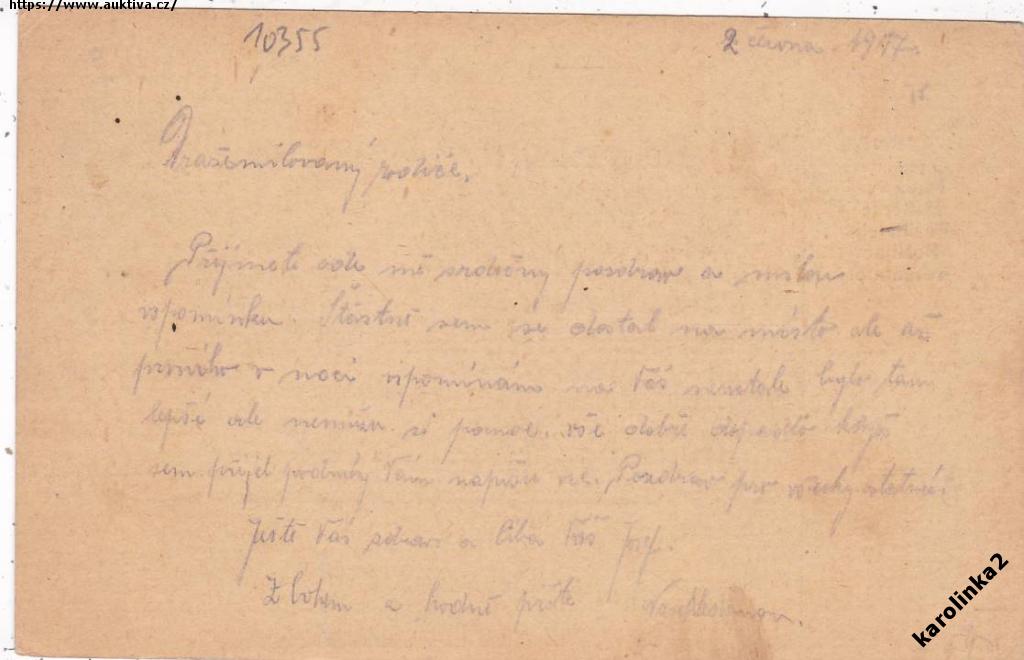 https://www.auktiva.cz/
10355 2 června 1917.
Drazemilovaný rodiče.
Přijmete ode mě srdečný pozdrav a milou
vspomínku. Štástně sem se dostal na místo ale až
v noci vspomínám na Vás bylo tam
lepší ale nemužu si pomoc. vše dobře dopadlo když
sem přijel Vám napíšu vse. Pozdrav pro všecky ostatní.
Ještě Vás zdraví a líbá Váš Josef.
Z bohem a hodně pište
karolinka2